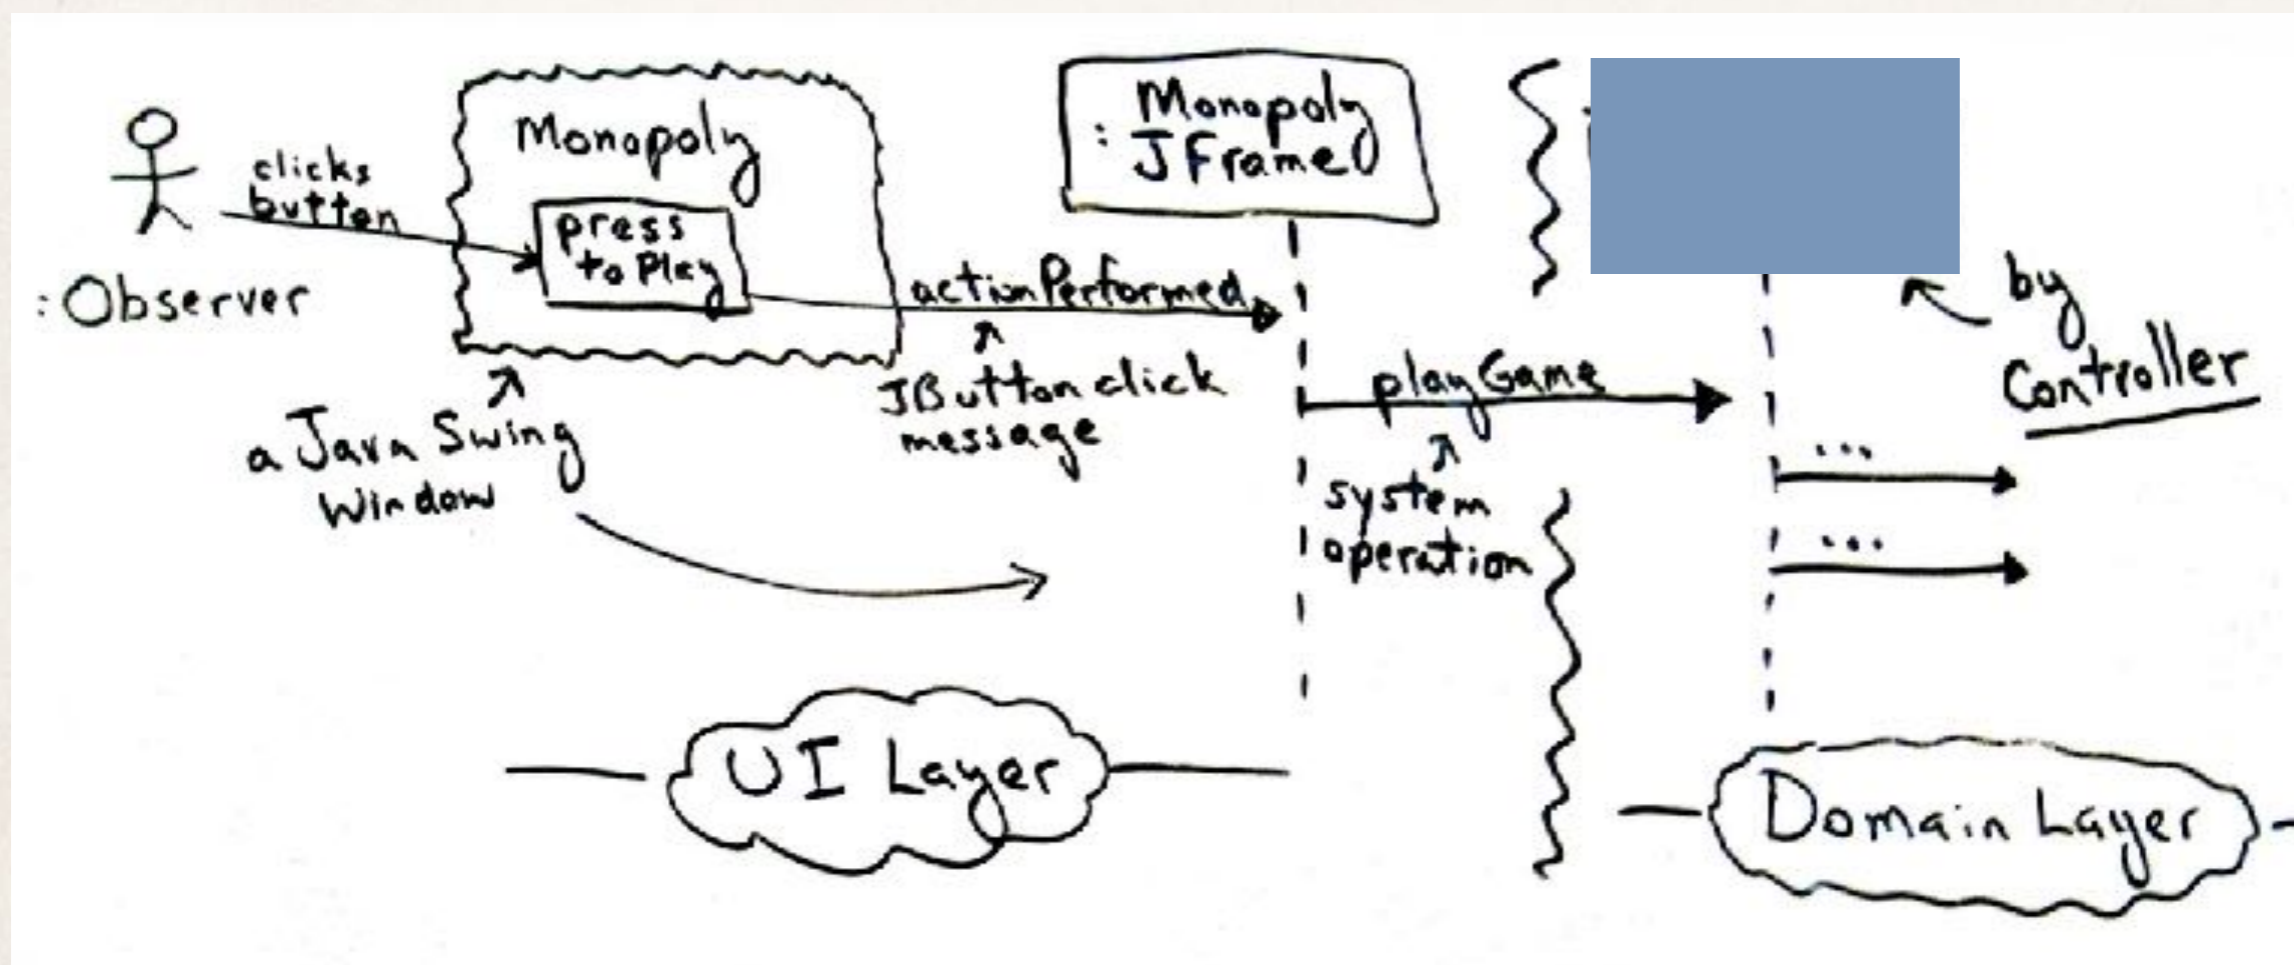 :Observer
clicks
button
Monopoly
press
to Play
a Java Swing
Window
actionPerformed
JButton click
message
: Monopoly
JFrame
playGame
system
operation
by
Controller
...
...
UI Layer
Domain Layer